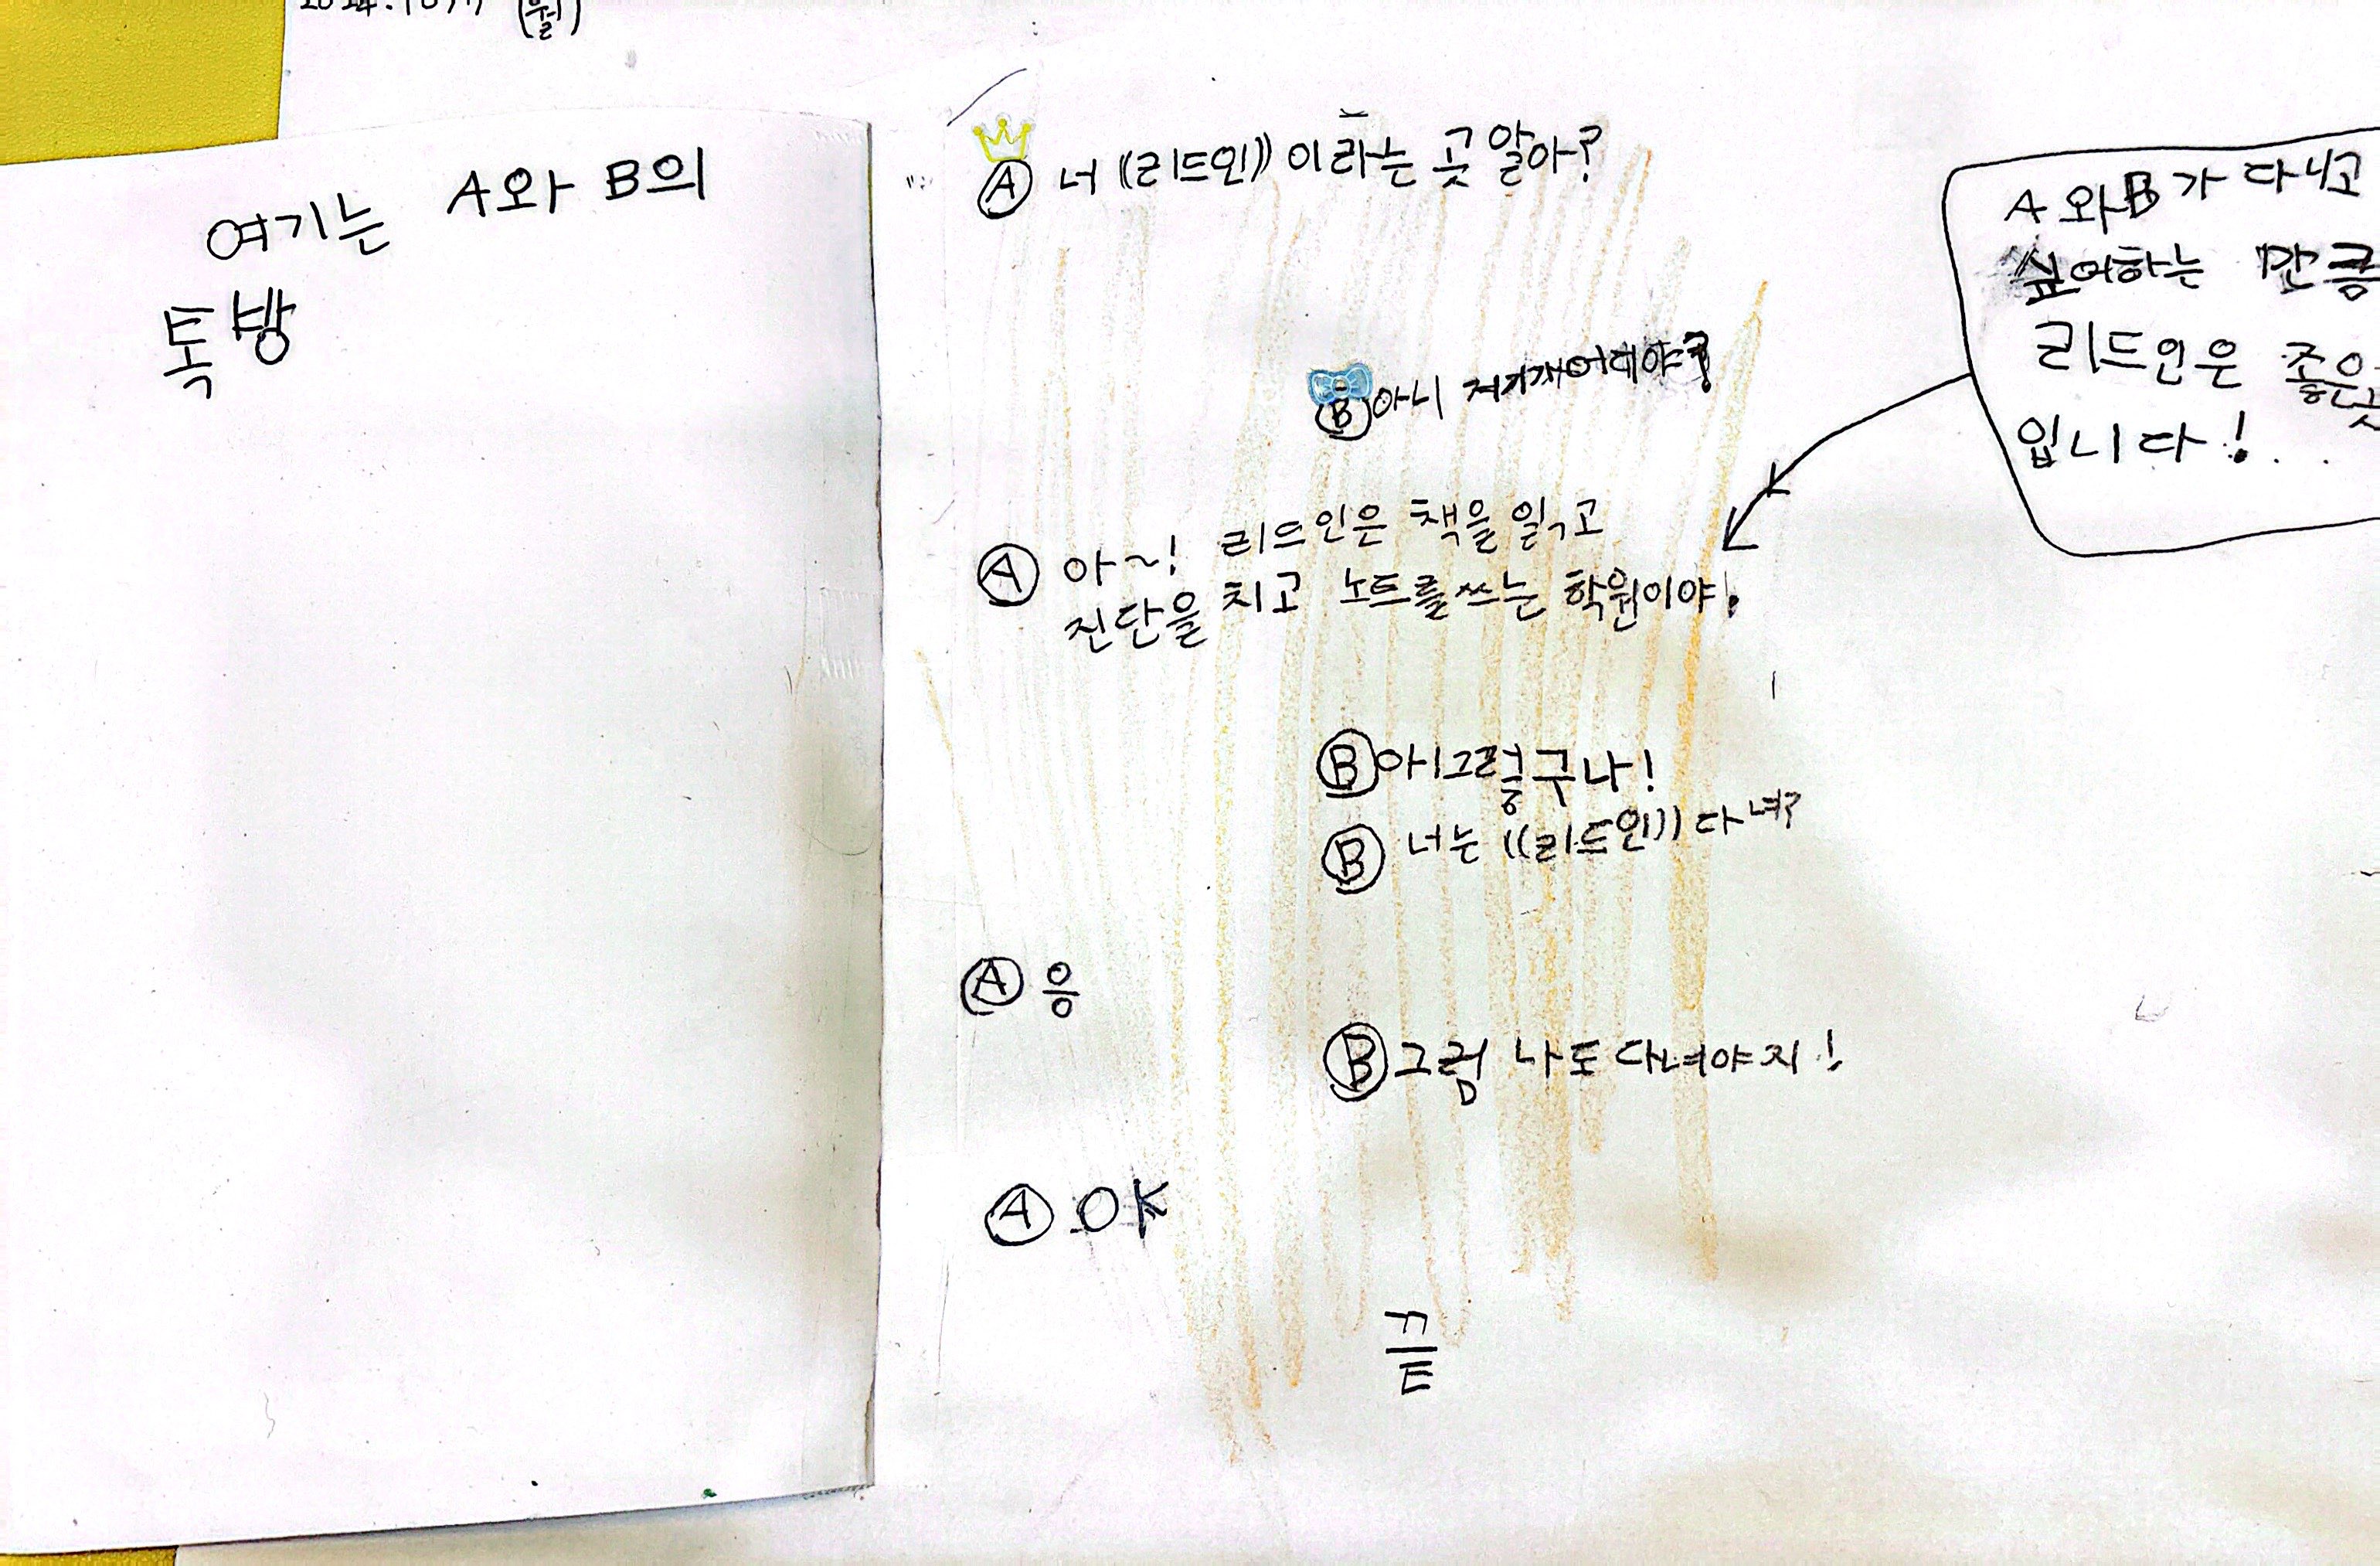 (월)
여기는 A와 B의
톡방
A 너 ((리드인)) 이라는 곳 알아?
B 아니 저기가 어디야?
A 아~! 리드인은 책을 읽고
진단을 치고 노트를 쓰는 학원이야!
B 아 그렇구나!
B 너는 ((리드인)) 다녀?
A 응
B 그럼 나도 다녀야지!
A OK
끝
A와 B가 다니고
싶어하는 만큼
리드인은 좋은
입니다!